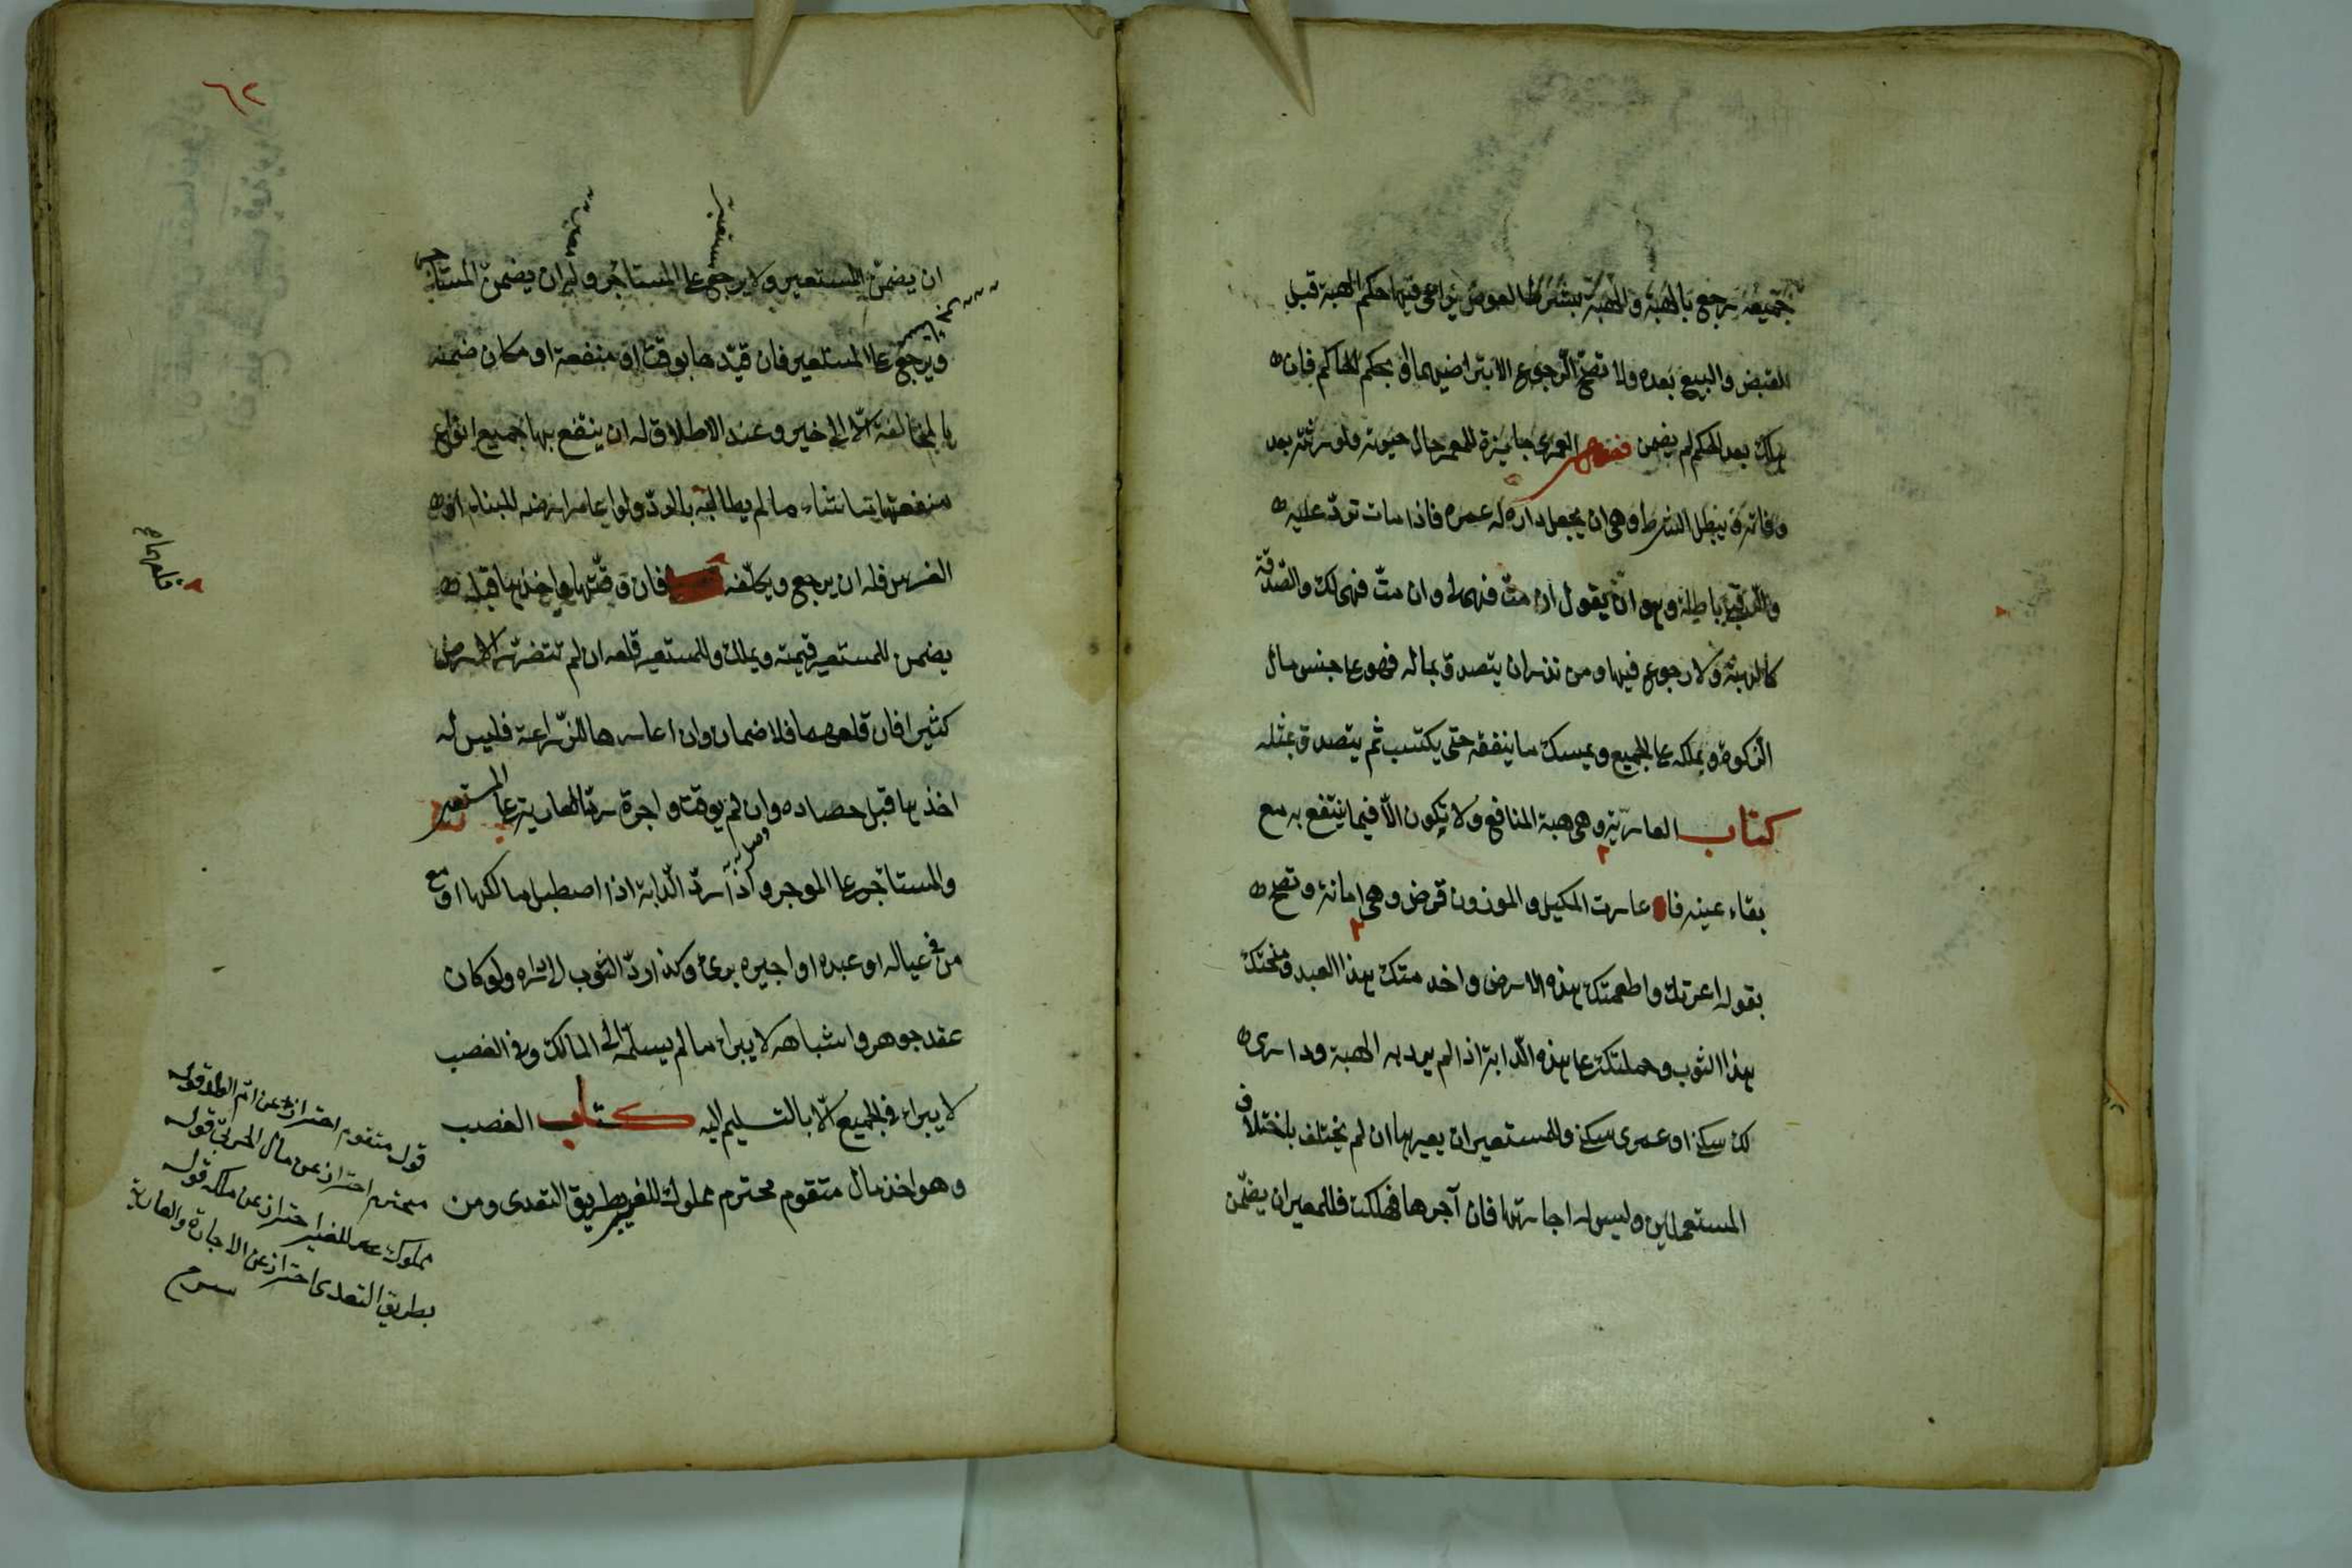 جميعه يرجع بالهبة والهبة بشرط العوض يراعى فيها حكم الهبة قبل
القبض والبيع بعده ولا تصح الرجوع الا بتراضيهما او بحكم الحاكم فان
هلك بعد الحكم لم يضمن فصل العمرى جايزة للمعمر حال حيوته ولورثته بعد
وفاته ويبطل الشرط وهى ان يجعل داره له عمره فاذا مات ترد عليه
والرقبى باطلة وهو ان يقول ان مت فهى لى وان مت فهى لك والصدقة
كالهبة ولا رجوع فيها ومن نذر ان يتصدق بماله فهو على جنس مال
الزكوة وبملكه على الجميع ويمسك ما ينفقه حتى يكتسب ثم يتصدق بمثله
كتاب العارية وهى هبة المنافع ولا يكون الا فيما ينتفع به مع
بقاء عينه فا عارت المكيل والموزون قرض وهى امانة وتصح
بقوله اعرتك واطعمتك هذه الارض واخدمتك هذا العبد ومنحتك
هذا الثوب وحملتك على هذه الدابة اذا لم يرد به الهبة ودارى
لك سكنى او عمرى سكنى وللمستعير ان يعيرها ان لم يختلف باختلاف
المستعملين وليس له اجارتها فان آجرها فهلكت فللمعير ان يضمن
٦٢
ان يضمن المستعير ولا يرجع على المستأجر وله ان يضمن المستأجر
ويرجع على المستعير فان قيدها بوقت او منفعة او مكان ضمنه
بالمخالفة الا الى خير وعند الاطلاق له ان ينتفع بها جميع انواع
منفعتها ما شاء ما لم يطالبه بالرد ولو اعار ارضه للبناء او
الغرس فله ان يرجع ويكلفه فان وقتها واخذها قبله
يضمن للمستعير قيمته ويملك وللمستعير قلعه ان لم تتضرر الارض
كثيرا فان قلعهما فلا ضمان وان اعارها للزراعة فليس له
اخذها قبل حصاده وان لم يوقت واجرة رد العارية على المستعير
والمستأجر على الموجر واذا رد الدابة اذا اصطبل مالكها او مع
من فى عياله او عبده او اجيره برئ وكذا رد الثوب الى داره ولو كان
عقد جوهر واشباهه لا يبراء ما لم يسلمه الى المالك وفى الغصب
لا يبراء فى الجميع الا بالتسليم اليه كتاب الغصب
وهو اخذ مال متقوم محترم مملوك للغير بطريق التعدى ومن
قلعهما
قوله متقوم احترازا عن
محترم احتراز عن مال الحربى قوله
مملوك للغير احتراز عن ملكه قوله
بطريق التعدى احتراز عن الاجارة والعارية